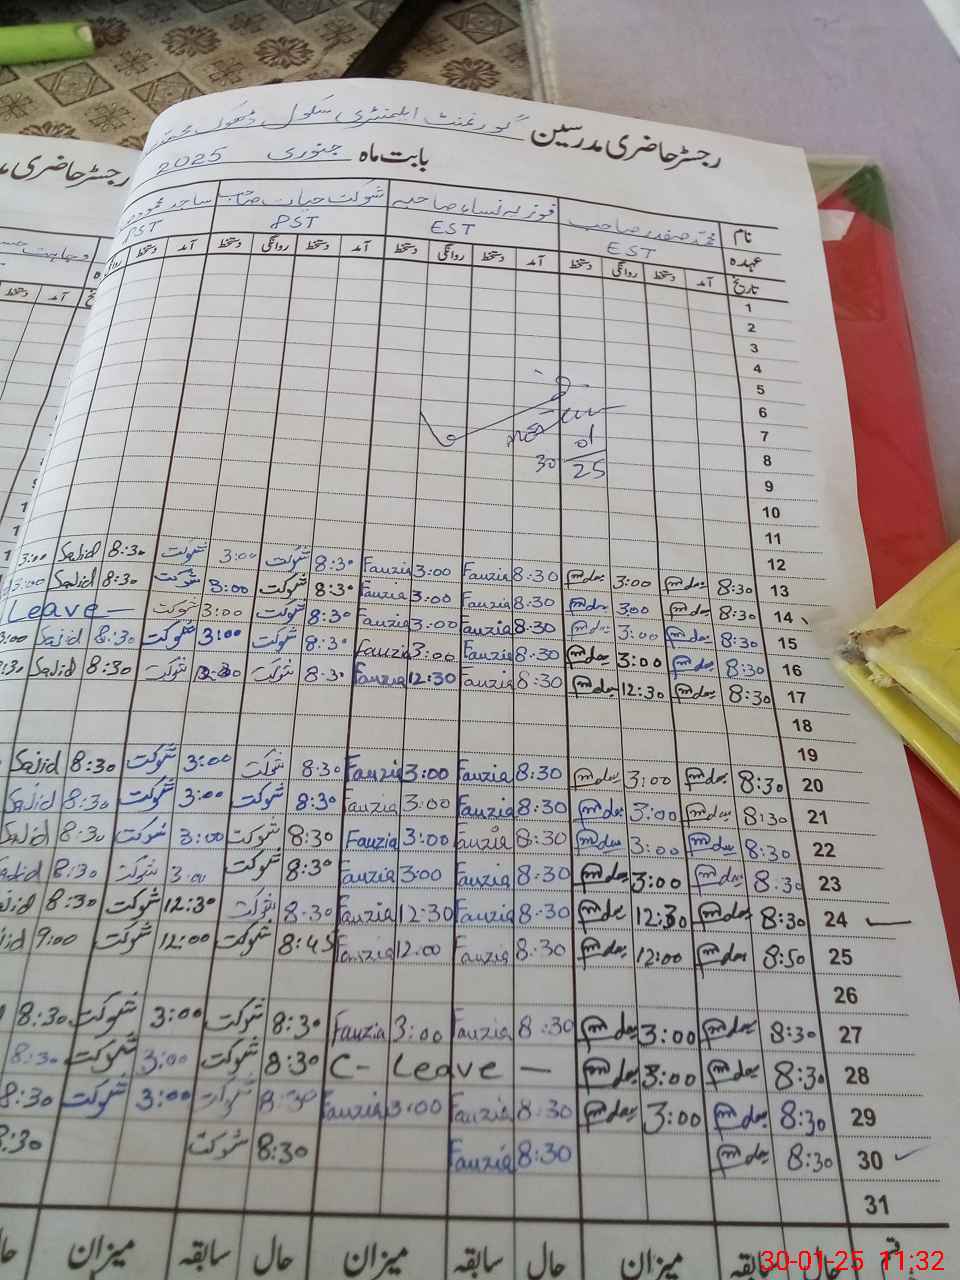 رجسٹر حاضری مدرسین گورنمنٹ ایلمنٹری سکول ڈھوک محمد
بابت ماہ جنوری 2025
رجسٹر حاضری مد
نام محمد صفدر صاحب فوزیہ نساء صاحبہ شوکت حیات صاحب ساجد محمود
عہدہ EST EST PST PST
تاریخ آمد دستخط روانگی دستخط آمد دستخط روانگی دستخط آمد دستخط روانگی دستخط آمد دستخط
1
2
3
4
5
6
7
8
30 01/25
9
10
11
12
13 8:30 3:00 8:30 Fauzia 3:00 Fauzia 8:30 شوکت 3:00 شوکت 8:30 Sajid 3:00
14 8:30 3:00 8:30 Fauzia 3:00 Fauzia 8:30 شوکت 3:00 شوکت 8:30 Sajid 3:00
15 8:30 3:00 8:30 Fauzia 3:00 Fauzia 8:30 شوکت 3:00 شوکت Leave
16 8:30 3:00 8:30 Fauzia 3:00 Fauzia 8:30 شوکت 3:00 شوکت 8:30 Sajid 3:00
17 8:30 12:30 8:30 Fauzia 12:30 Fauzia 8:30 شوکت شوکت 8:30 Sajid
18
19
20 8:30 3:00 8:30 Fauzia 3:00 Fauzia 8:30 شوکت 3:00 شوکت 8:30 Sajid
21 8:30 3:00 8:30 Fauzia 3:00 Fauzia 8:30 شوکت 3:00 شوکت 8:30 Sajid
22 8:30 3:00 8:30 Fauzia 3:00 Fauzia 8:30 شوکت 3:00 شوکت 8:30 Sajid
23 8:30 3:00 8:30 Fauzia 3:00 Fauzia 8:30 شوکت 3:00 شوکت 8:30
24 8:30 12:30 8:30 Fauzia 12:30 Fauzia 8:30 شوکت 12:30 شوکت 8:30
25 8:50 12:00 8:30 Fauzia 12:00 Fauzia 8:45 شوکت 12:00 شوکت 9:00
26
27 8:30 3:00 8:30 Fauzia 3:00 Fauzia 8:30 شوکت 3:00 شوکت 8:30
28 8:30 3:00 C- Leave 8:30 شوکت 3:00 شوکت 8:30
29 8:30 3:00 8:30 Fauzia 3:00 Fauzia 8:30 شوکت 3:00 شوکت 8:30
30 8:30 8:30 Fauzia 8:30 شوکت 8:30
31
حال سابقہ میزان حال سابقہ میزان حال سابقہ میزان
30-01-25 11:32